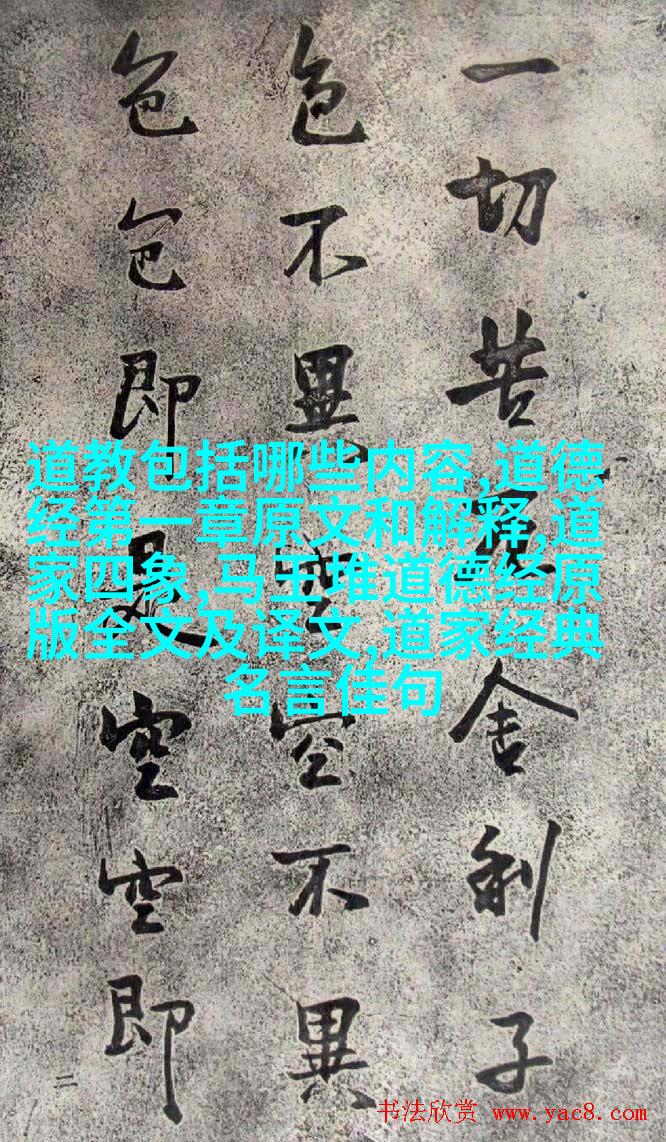 一切苦厄舍利子
色不異空空不異
色色即是空空即
二
道教包括哪些内容,道德
经第一章原文和解释,道
家四象,马王堆道德经原
版全文及译文,道家经典
名言佳句
书法欣赏 www.yac8.com